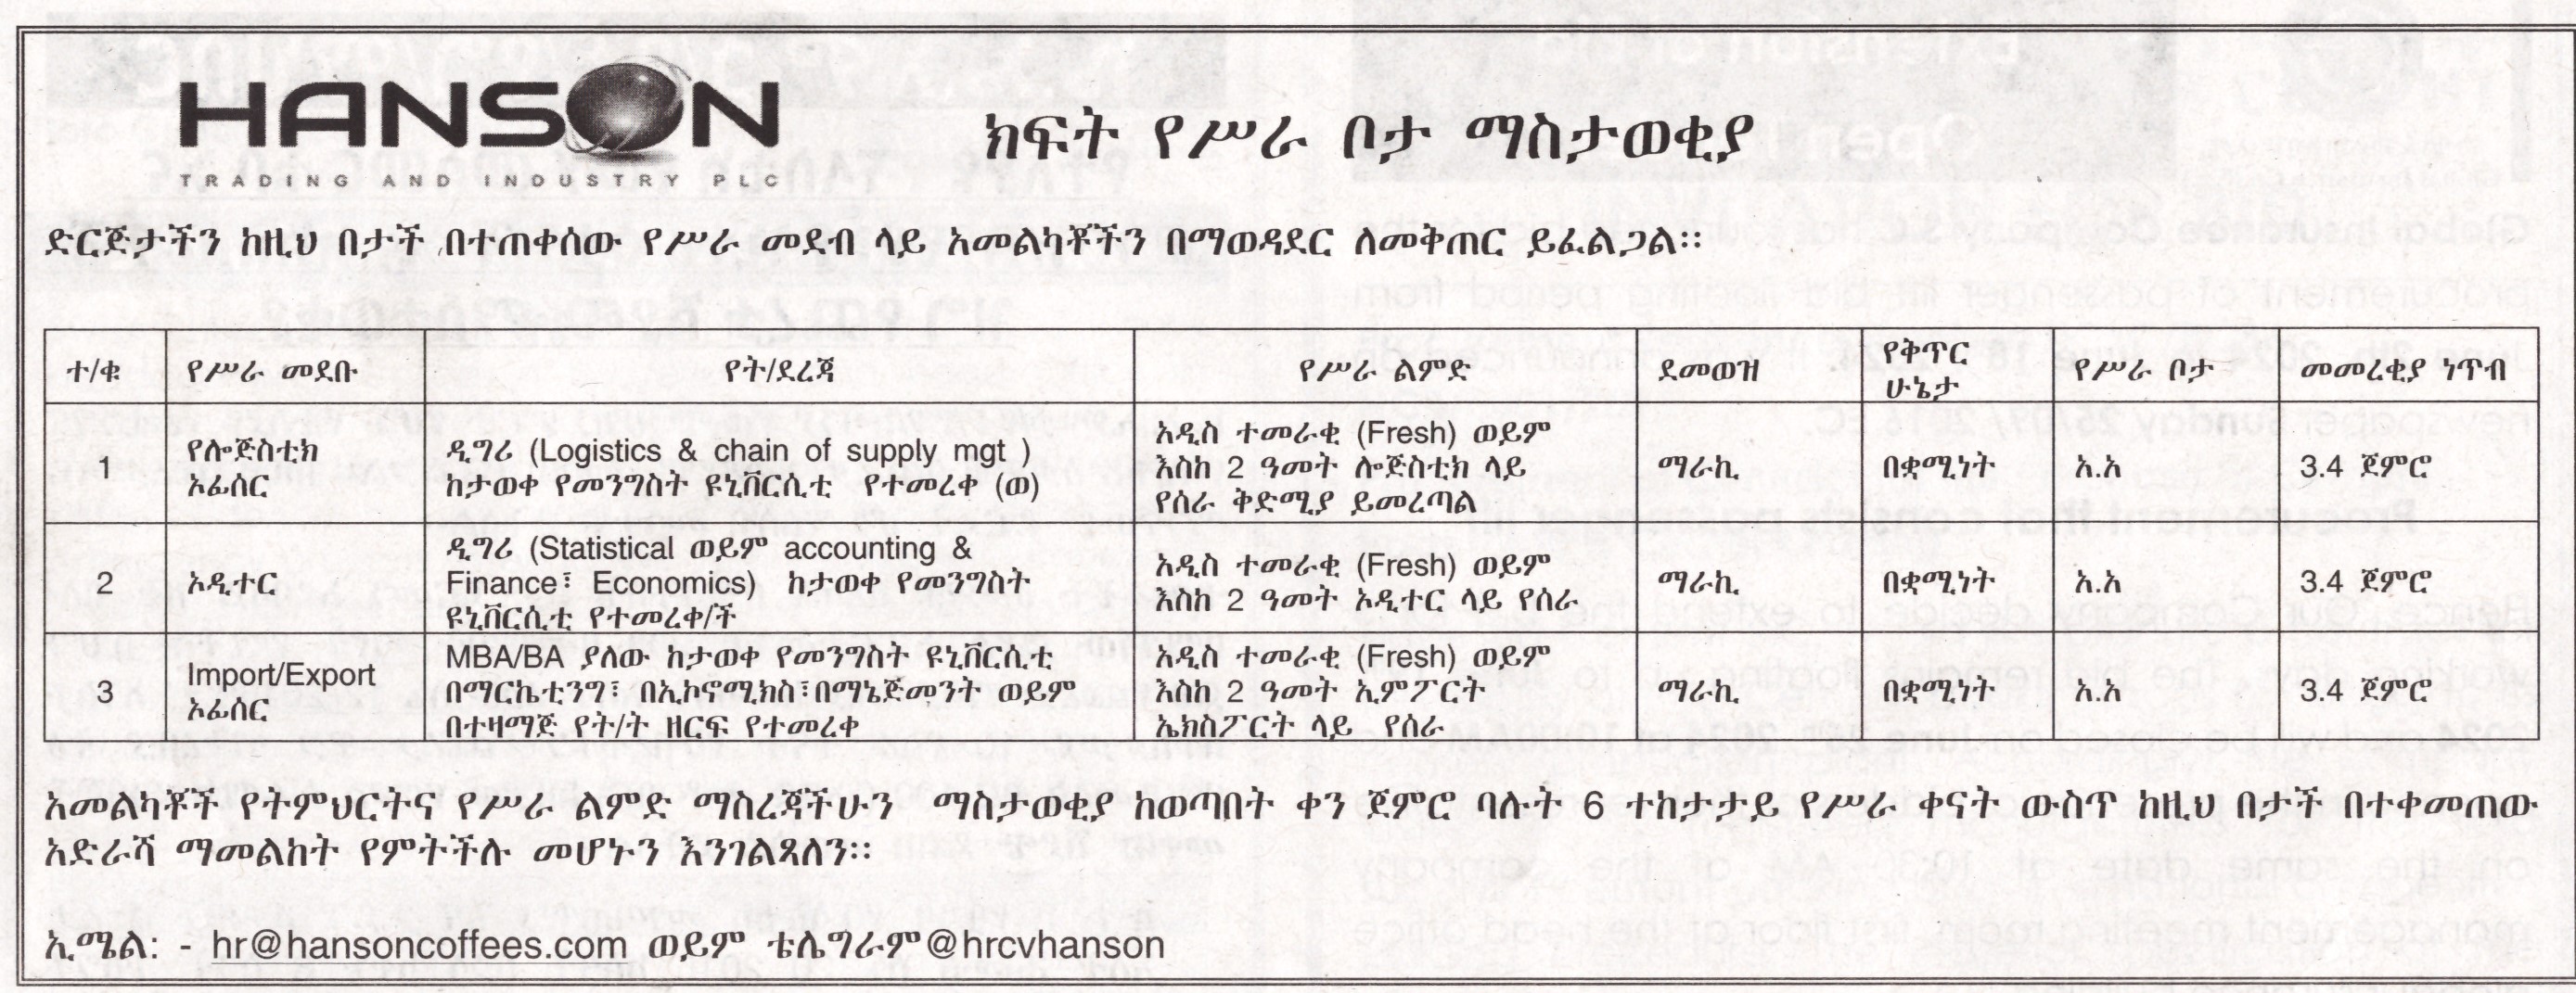 HANSON
TRADING AND INDUSTRY PLC
ክፍት የሥራ ቦታ ማስታወቂያ
ድርጅታችን ከዚህ በታች በተጠቀሰው የሥራ መደብ ላይ አመልካቾችን በማወዳደር ለመቅጠር ይፈልጋል፡፡
ተ/ቁ የሥራ መደቡ የት/ደረጃ የሥራ ልምድ ደመወዝ የቅጥር ሁኔታ የሥራ ቦታ መመረቂያ ነጥብ
1
የሎጅስቲክ
ኦፊሰር
ዲግሪ (Logistics & chain of supply mgt )
ከታወቀ የመንግስት ዩኒቨርሲቲ የተመረቀ (ወ)
አዲስ ተመራቂ (Fresh) ወይም
እስከ 2 ዓመት ሎጅስቲክ ላይ
የሰራ ቅድሚያ ይመረጣል
ማራኪ
በቋሚነት
አ.አ
3.4 ጀምሮ
2
ኦዲተር
ዲግሪ (Statistical ወይም accounting &
Finance፣ Economics) ከታወቀ የመንግስት
ዩኒቨርሲቲ የተመረቀ/ች
አዲስ ተመራቂ (Fresh) ወይም
እስከ 2 ዓመት ኦዲተር ላይ የሰራ
ማራኪ
በቋሚነት
አ.አ
3.4 ጀምሮ
3
Import/Export
ኦፊሰር
MBA/BA ያለው ከታወቀ የመንግስት ዩኒቨርሲቲ
በማርኬቲንግ፣ በኢኮኖሚክስ፣በማኔጅመንት ወይም
በተዛማጅ የት/ት ዘርፍ የተመረቀ
አዲስ ተመራቂ (Fresh) ወይም
እስከ 2 ዓመት ኢምፖርት
ኤክስፖርት ላይ የሰራ
ማራኪ
በቋሚነት
አ.አ
3.4 ጀምሮ
አመልካቾች የትምህርትና የሥራ ልምድ ማስረጃችሁን ማስታወቂያ ከወጣበት ቀን ጀምሮ ባሉት 6 ተከታታይ የሥራ ቀናት ውስጥ ከዚህ በታች በተቀመጠው
አድራሻ ማመልከት የምትችሉ መሆኑን እንገልጻለን፡፡
ኢሜል: - hr@hansoncoffees.com ወይም ቴሌግራም@hrcvhanson